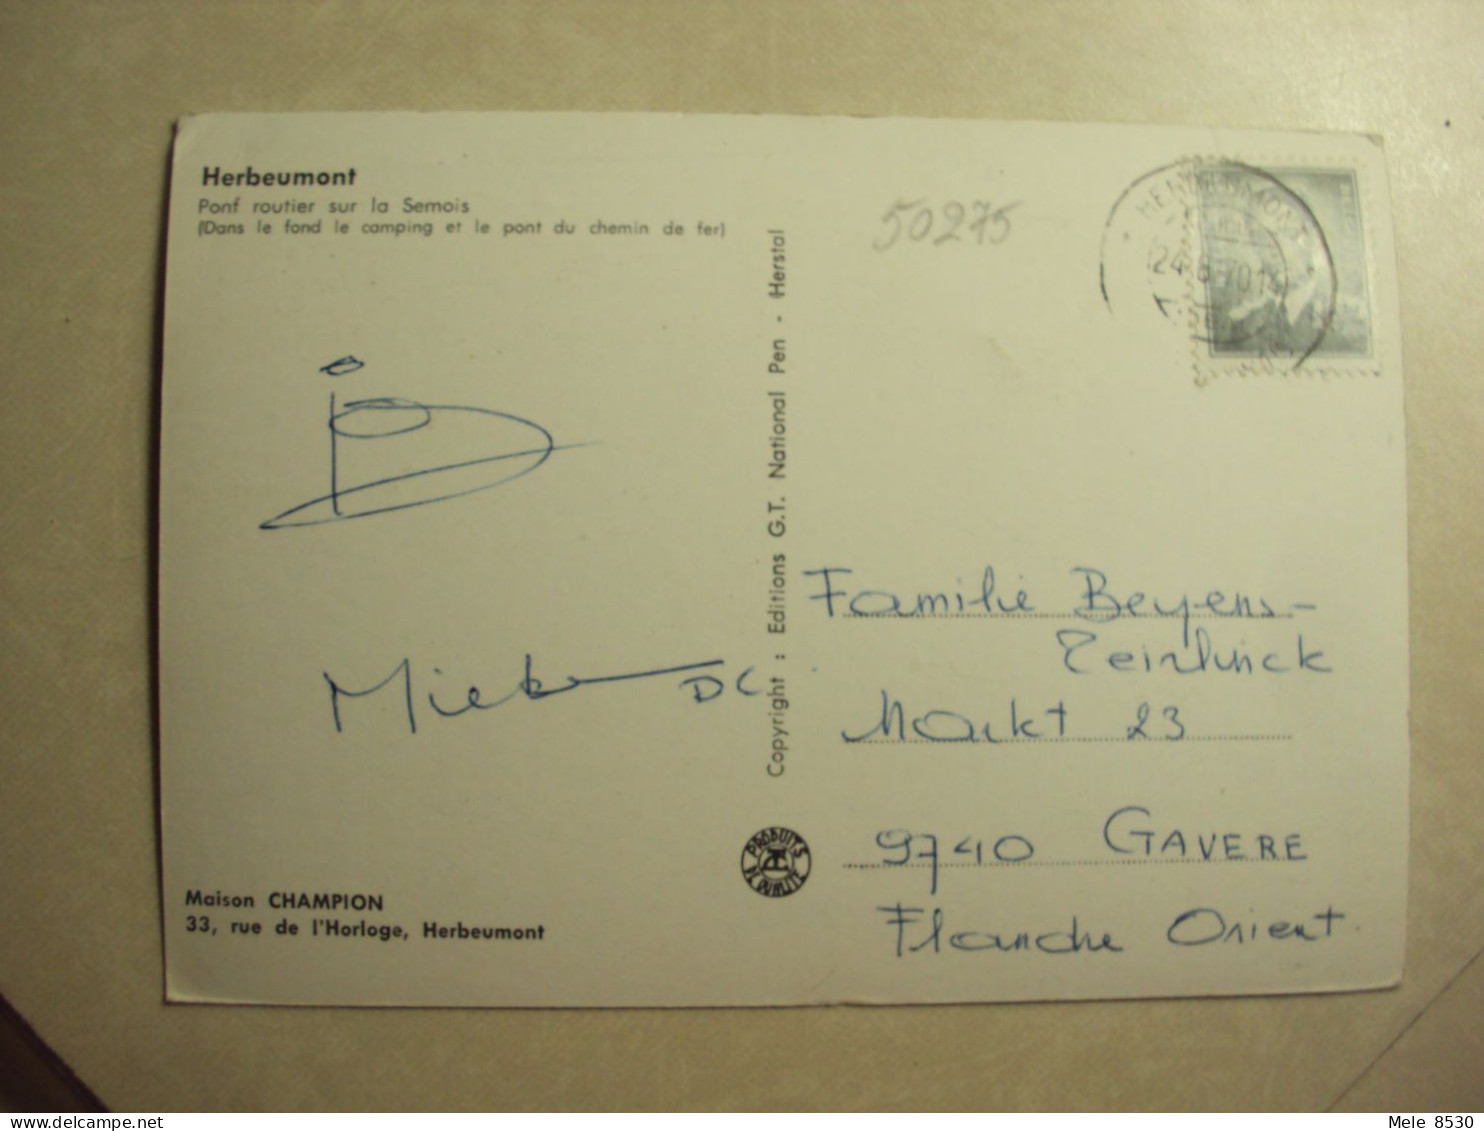 Herbeumont
Pont routier sur la Semois
(Dans le fond le camping et le pont du chemin de fer)
50275
HERBEUMONT
24
Miek DC
Copyright : Editions G.T. National Pen - Herstal
Familie Beyens-
Teirlinck
Markt 23
9740 GAVERE
Flandre Orient.
PRODUITS
DE QUALITE
Maison CHAMPION
33, rue de l'Horloge, Herbeumont
Mele 8530